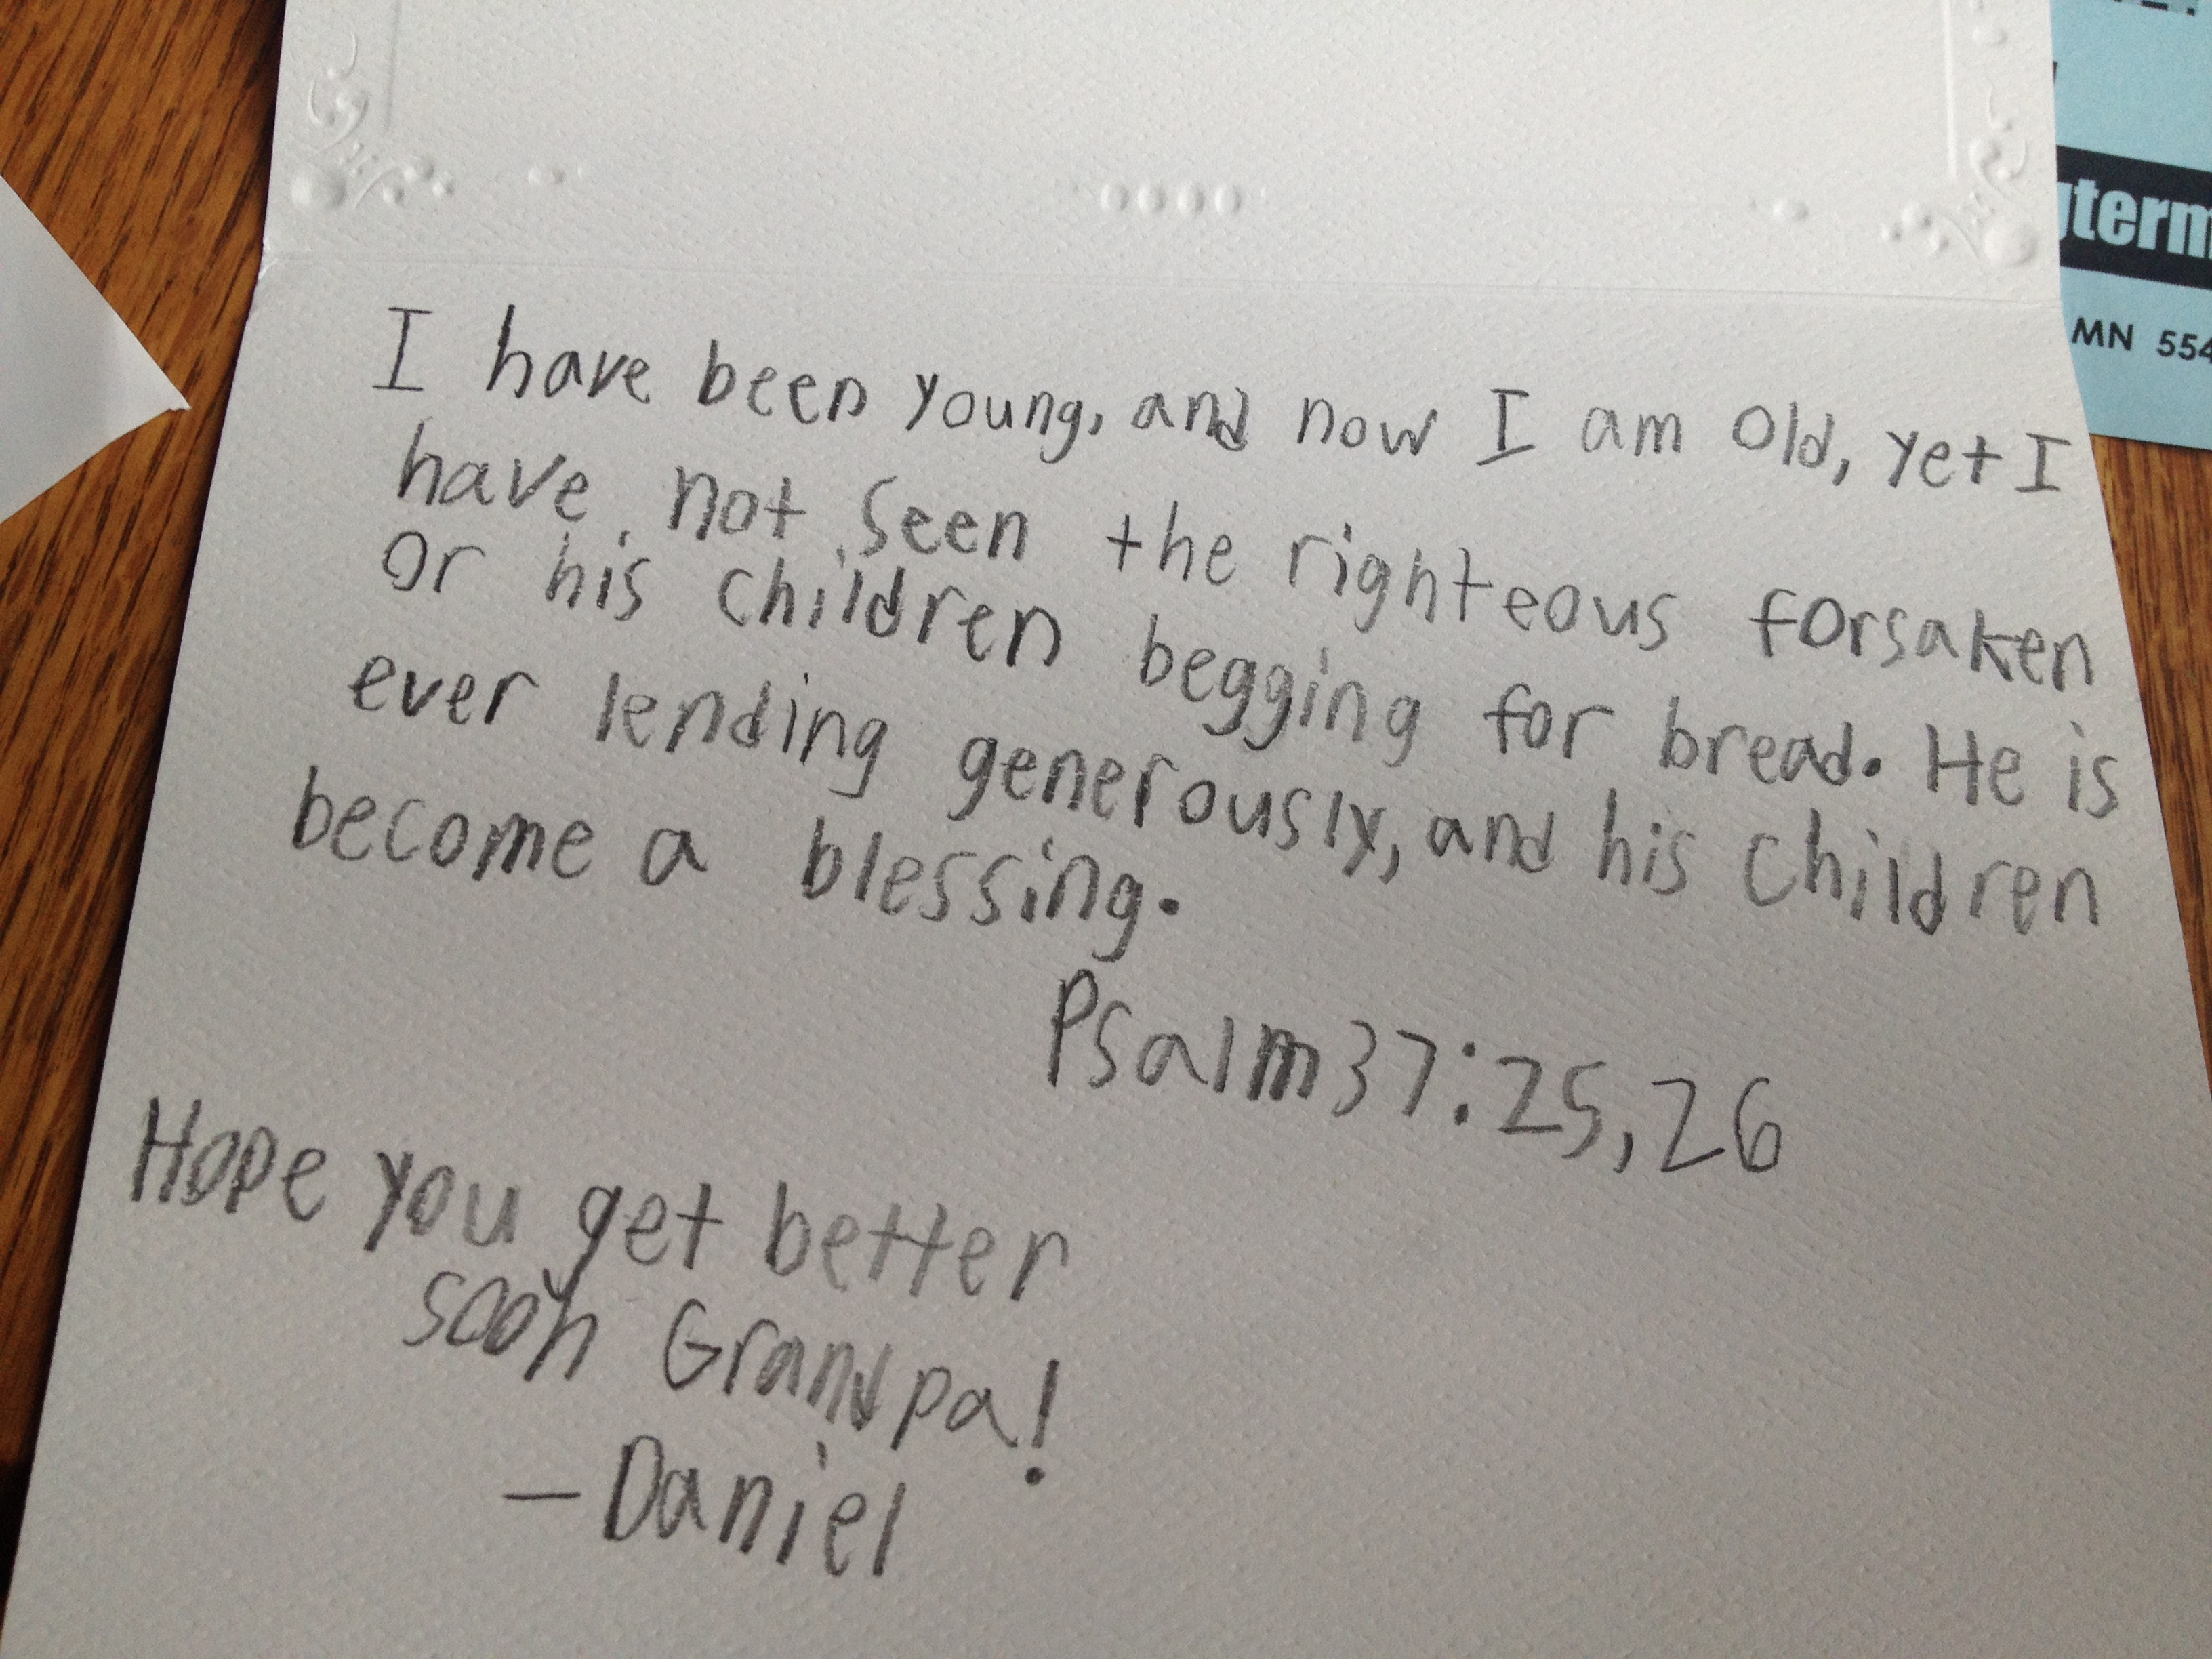 I have been young, and now I am old, yet I
have not seen the righteous forsaken
or his children begging for bread. He is
ever lending generously, and his children
become a blessing.
Psalm 37:25,26
Hope you get better
soon Grandpa!
-Daniel
gterm
MN 554